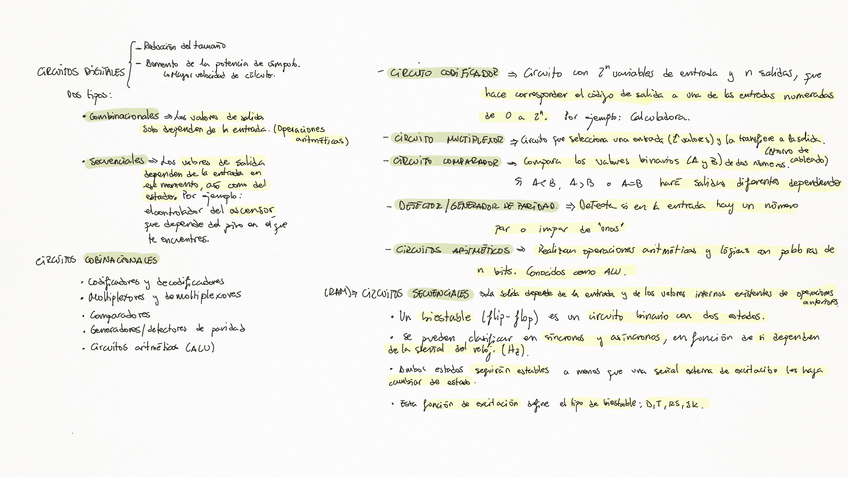 CIRCUITOS DIGITALES
- Reducción del tamaño
- Aumento de la potencia de cómputo.
↳ Mayor velocidad de cálculo.
Dos tipos:
• Combinacionales ⇒ Los valores de salida
solo dependen de la entrada. (Operaciones
aritméticas)
• Secuenciales ⇒ Los valores de salida
dependen de la entrada en
ese momento, así como del
estado. Por ejemplo:
el controlador del ascensor
que depende del piso en el que
te encuentres.
CIRCUITOS COBINACIONALES
• Codificadores y decodificadores
• Multiplexores y demultiplexores
• Comparadores
• Generadores/detectores de paridad
• Circuitos aritméticos (ALU)
- CIRCUITO CODIFICADOR ⇒ Circuito con 2ⁿ variables de entrada y n salidas, que
hace corresponder el código de salida a una de las entradas numeradas
de 0 a 2ⁿ. Por ejemplo: Calculadora.
- CIRCUITO MULTIPLEXOR ⇒ Circuito que selecciona una entrada (2ⁿ valores) y la transfiere a la salida.
- CIRCUITO COMPARADOR ⇒ Compara los valores binarios (A y B) de dos números. cableado)
Si A<B, A>B o A=B hará salidas diferentes dependiendo
- DETECTOR/GENERADOR DE PARIDAD ⇒ Detecta si en la entrada hay un número
par o impar de "unos"
- CIRCUITOS ARITMÉTICOS ⇒ Realizan operaciones aritméticas y lógicas con palabras de
n bits. Conocidos como ALU.
(RAM) ⇒ CIRCUITOS SECUENCIALES ⇒ La salida depende de la entrada y de los valores internos existentes de operaciones
anteriores
• Un biestable (flip-flop) es un circuito binario con dos estados.
• Se pueden clasificar en síncronos y asíncronos, en función de si dependen
de la señal del reloj. (Hz).
• Ambos estados seguirán estables a menos que una señal externa de excitación los haga
cambiar de estado.
• Esta función de excitación define el tipo de biestable: D, T, RS, JK.